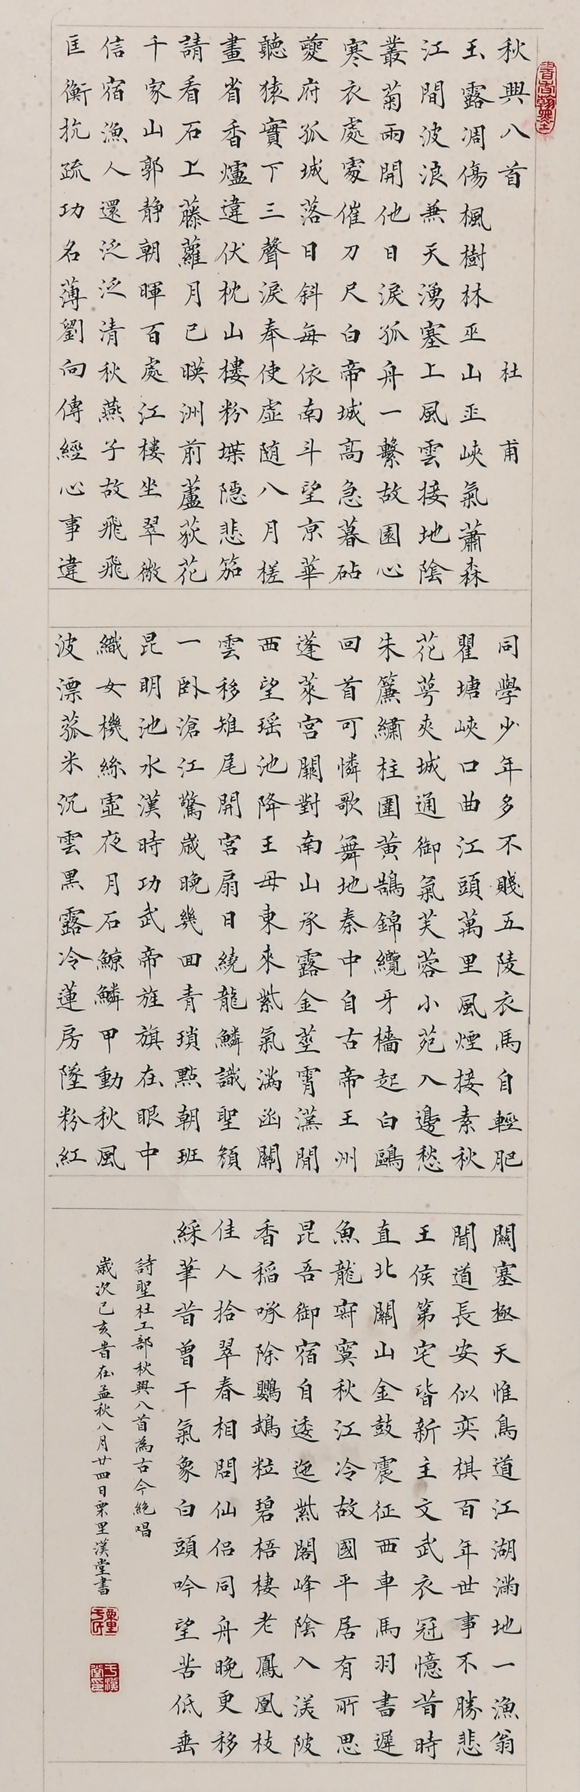 秋興八首 杜甫
玉露凋傷楓樹林巫山巫峽氣蕭森
江間波浪兼天湧塞上風雲接地陰
叢菊兩開他日淚孤舟一繫故園心
寒衣處處催刀尺白帝城高急暮砧
夔府孤城落日斜每依南斗望京華
聽猿實下三聲淚奉使虛隨八月槎
畫省香爐違伏枕山樓粉堞隱悲笳
請看石上藤蘿月已暎洲前蘆荻花
千家山郭靜朝暉百處江樓坐翠微
信宿漁人還泛泛清秋燕子故飛飛
匡衡抗疏功名薄劉向傳經心事違
同學少年多不賤五陵衣馬自輕肥
瞿塘峽口曲江頭萬里風煙接素秋
花萼夾城通御氣芙蓉小苑入邊愁
朱簾繡柱圍黃鵠錦纜牙檣起白鷗
回首可憐歌舞地秦中自古帝王州
蓬萊宮闕對南山承露金莖霄漢間
西望瑤池降王母東來紫氣滿函關
雲移雉尾開宮扇日繞龍鱗識聖顏
一臥滄江驚歲晚幾回青瑣點朝班
昆明池水漢時功武帝旌旗在眼中
織女機絲虛夜月石鯨鱗甲動秋風
波漂菰米沉雲黑露冷蓮房墜粉紅
關塞極天惟鳥道江湖滿地一漁翁
聞道長安似奕棋百年世事不勝悲
王侯第宅皆新主文武衣冠憶昔時
直北關山金鼓震征西車馬羽書遲
魚龍寂寞秋江冷故國平居有所思
昆吾御宿自逶迤紫閣峰陰入渼陂
香稻啄除鸚鵡粒碧梧棲老鳳凰枝
佳人拾翠春相問仙侶同舟晚更移
綵筆昔曾干氣象白頭吟望苦低垂
詩聖杜工部秋興八首為古今絕唱
歲次己亥旹在孟秋八月廿四日栗里漢堂書